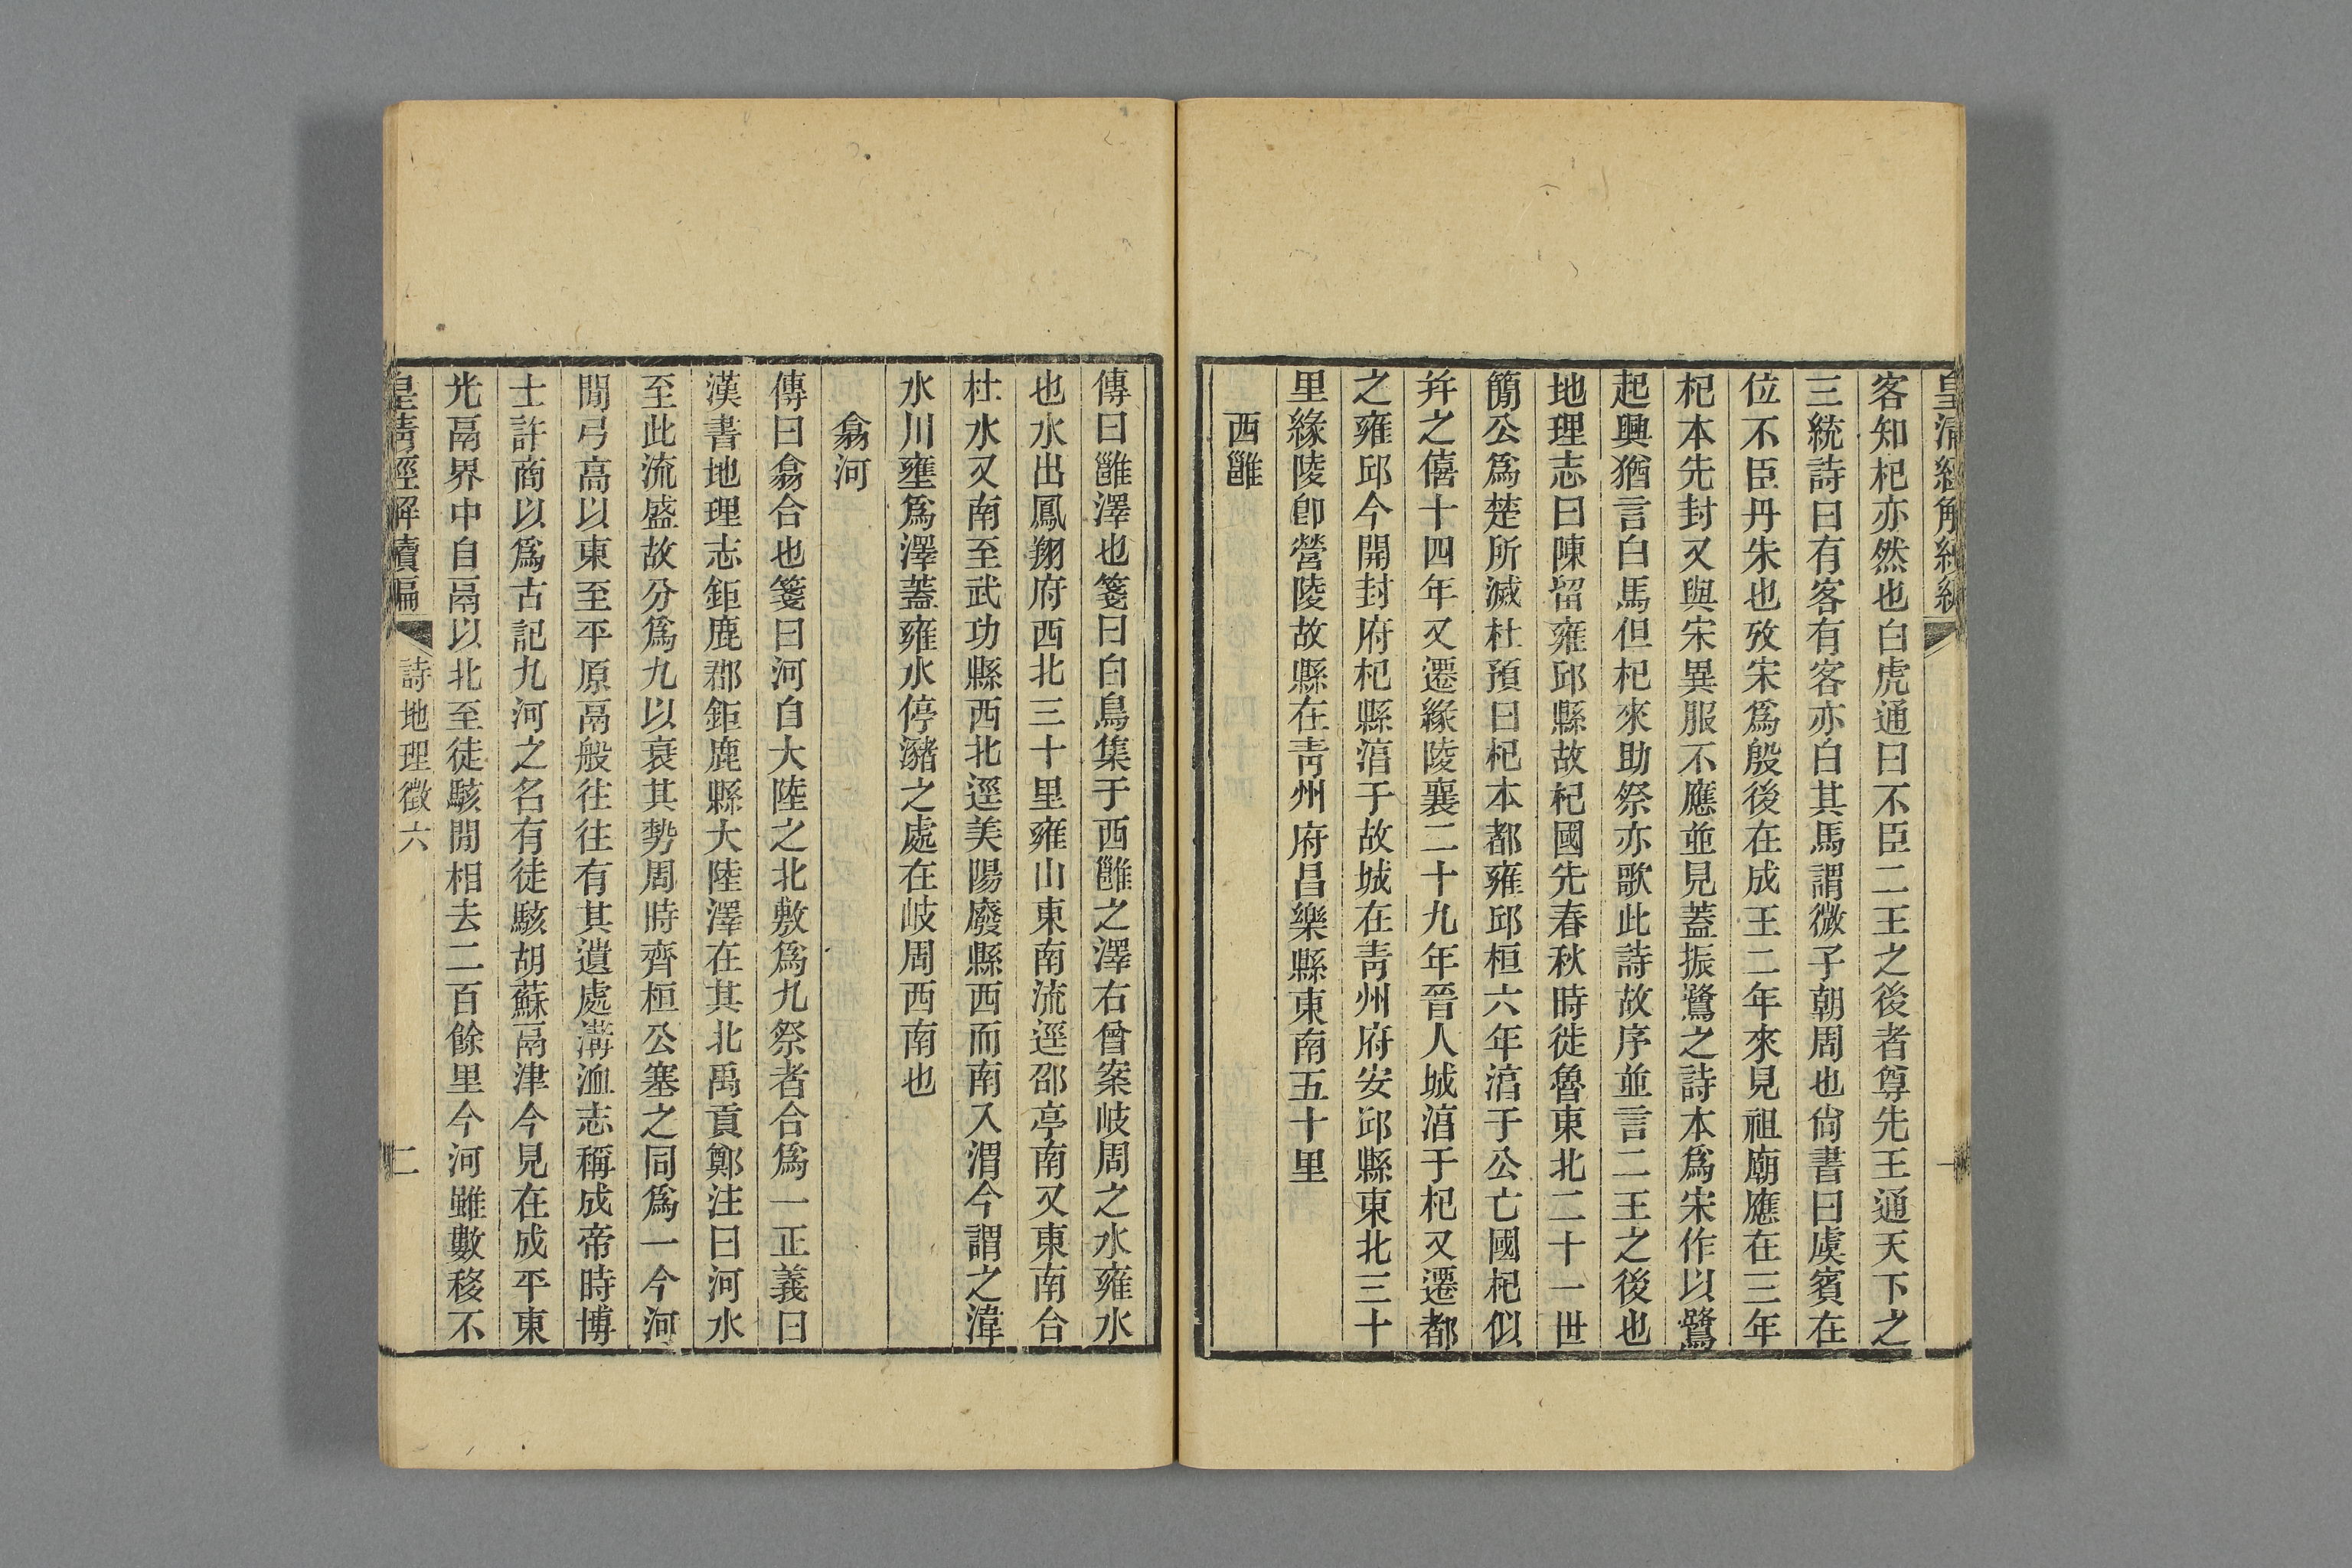 客知杞亦然也白虎通曰不臣二王之後者尊先王通天下之
三統詩曰有客有客亦白其馬謂微子朝周也尙書曰虞賓在
位不臣丹朱也攷宋爲殷後在成王二年來見祖廟應在三年
杞本先封又與宋異服不應並見蓋振鷺之詩本爲宋作以鷺
起興猶言白馬但杞來助祭亦歌此詩故序並言二王之後也
地理志曰陳留雍邱縣故杞國先春秋時徙魯東北二十一世
簡公爲楚所滅杜預曰杞本都雍邱桓六年淳于公亡國杞似
并之僖十四年又遷緣陵襄二十九年晉人城淳于杞又遷都
之雍邱今開封府杞縣淳于故城在靑州府安邱縣東北三十
里緣陵卽營陵故縣在靑州府昌樂縣東南五十里
西雝
傳曰雝澤也箋曰白鳥集于西雝之澤右曾案岐周之水雍水
也水出鳳翔府西北三十里雍山東南流逕邵亭南又東南合
杜水又南至武功縣西北逕美陽廢縣西而南入渭今謂之湋
水川壅爲澤蓋雍水停瀦之處在岐周西南也
翕河
傳曰翕合也箋曰河自大陸之北敷爲九祭者合爲一正義曰
漢書地理志鉅鹿郡鉅鹿縣大陸澤在其北禹貢鄭注曰河水
至此流盛故分爲九以衰其勢周時齊桓公塞之同爲一今河
閒弓高以東至平原鬲般往往有其遺處溝洫志稱成帝時博
士許商以爲古記九河之名有徒駭胡蘇鬲津今見在成平東
光鬲界中自鬲以北至徒駭閒相去二百餘里今河雖數移不
皇淸經解續編
詩地理徵六
二